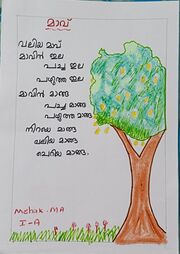 മാവ്
വലിയ മാവ്
മാവിൻ ഇല
പച്ച ഇല
പഴുത്ത ഇല
മാവിൻ മാങ്ങ
പച്ച മാങ്ങ
പഴുത്ത മാങ്ങ
നിറയെ മാങ്ങ
വലിയ മാങ്ങ
ചെറിയ മാങ്ങ.
Mehak. MA
I-A